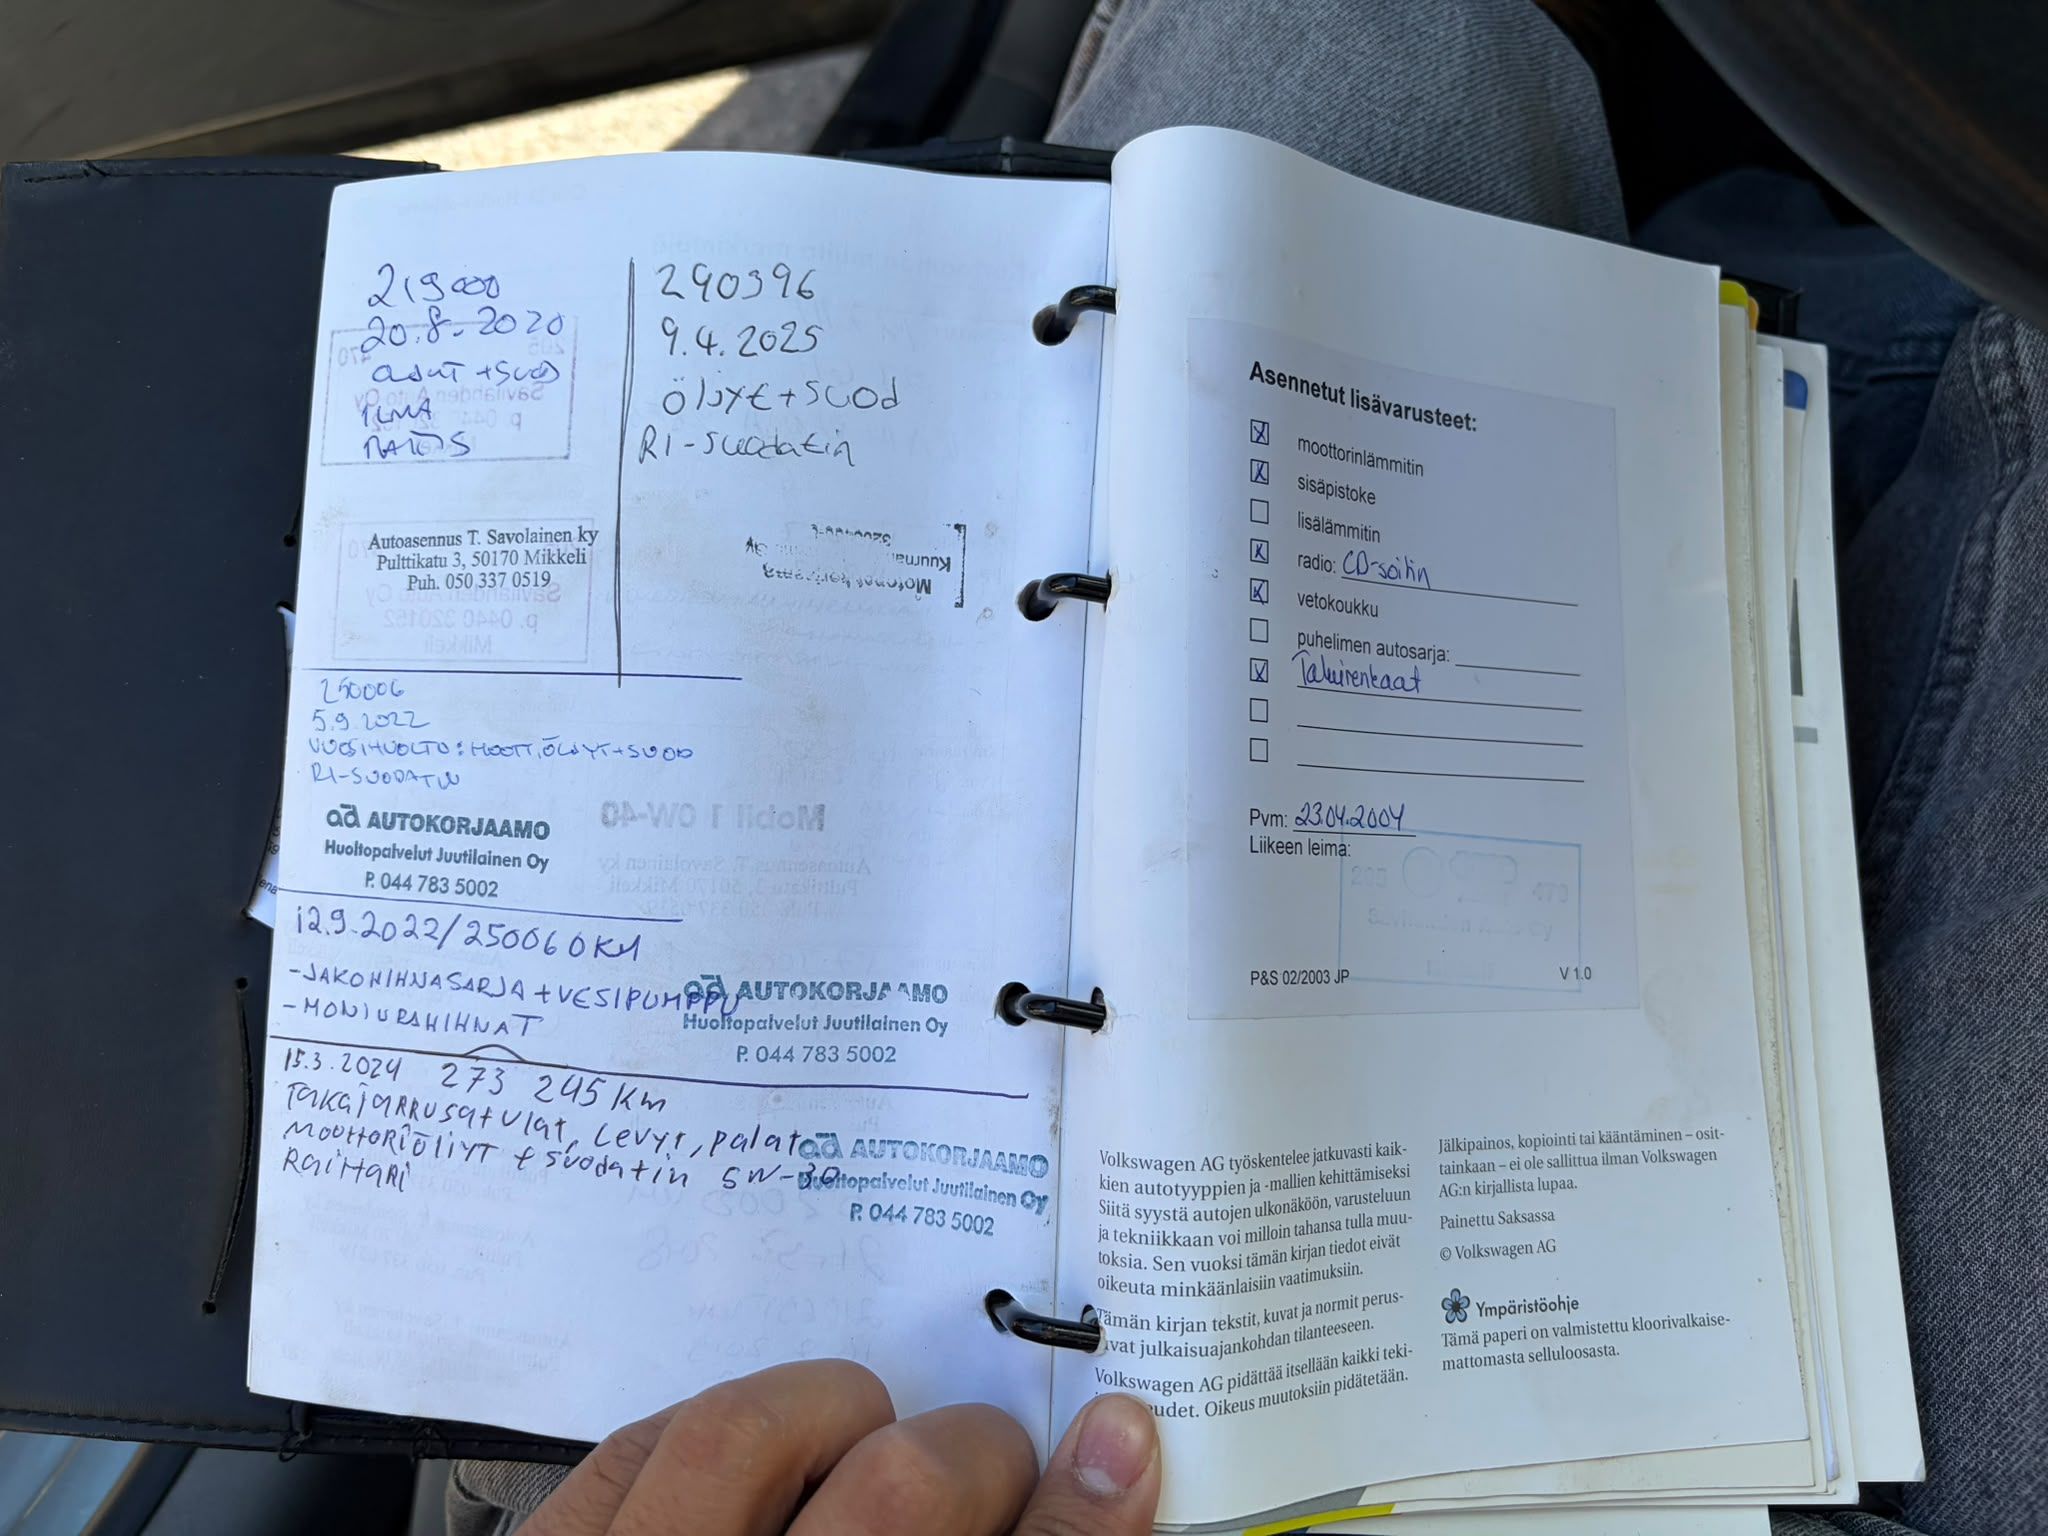 219000
20.8.2020
ÖLJYT + SUOD
ILMA
RAITIS
Autoasennus T. Savolainen ky
Pulttikatu 3, 50170 Mikkeli
Puh. 050 337 0519
290396
9.4.2025
öljyt + suod
RI-suodatin
Motonet korjaamo
Kuurnan
250006
5.9.2022
VUOSIHUOLTO: MOOTT.ÖLJYT+SUOD
RI-SUODATIN
ad AUTOKORJAAMO
Huoltopalvelut Juutilainen Oy
P. 044 783 5002
12.9.2022/250060KM
-JAKOHIHNASARJA + VESIPUMPPU
-MONIURAHIHNAT
ad AUTOKORJAAMO
Huoltopalvelut Juutilainen Oy
P. 044 783 5002
15.3.2024 273 245 km
Takajarrusatulat, Levyt, palat
Moottoriöljyt + suodatin 5W-30
Raittari
ad AUTOKORJAAMO
Huoltopalvelut Juutilainen Oy
P. 044 783 5002
Asennetut lisävarusteet:
x moottorinlämmitin
x sisäpistoke
lisälämmitin
x radio: CD-soitin
x vetokoukku
puhelimen autosarja:
x Talvirenkaat
Pvm: 23.04.2004
Liikeen leima:
205 470
Savilahden Auto Oy
Mikkeli
P&S 02/2003 JP V 1.0
Volkswagen AG työskentelee jatkuvasti kaik-
kien autotyyppien ja -mallien kehittämiseksi
Siitä syystä autojen ulkonäköön, varusteluun
ja tekniikkaan voi milloin tahansa tulla muu-
toksia. Sen vuoksi tämän kirjan tiedot eivät
oikeuta minkäänlaisiin vaatimuksiin.
Tämän kirjan tekstit, kuvat ja normit perus-
vat julkaisuajankohdan tilanteeseen.
Volkswagen AG pidättää itsellään kaikki teki-
eudet. Oikeus muutoksiin pidätetään.
Jälkipainos, kopiointi tai kääntäminen – osit-
tainkaan – ei ole sallittua ilman Volkswagen
AG:n kirjallista lupaa.
Painettu Saksassa
© Volkswagen AG
Ympäristöohje
Tämä paperi on valmistettu kloorivalkaise-
mattomasta selluloosasta.